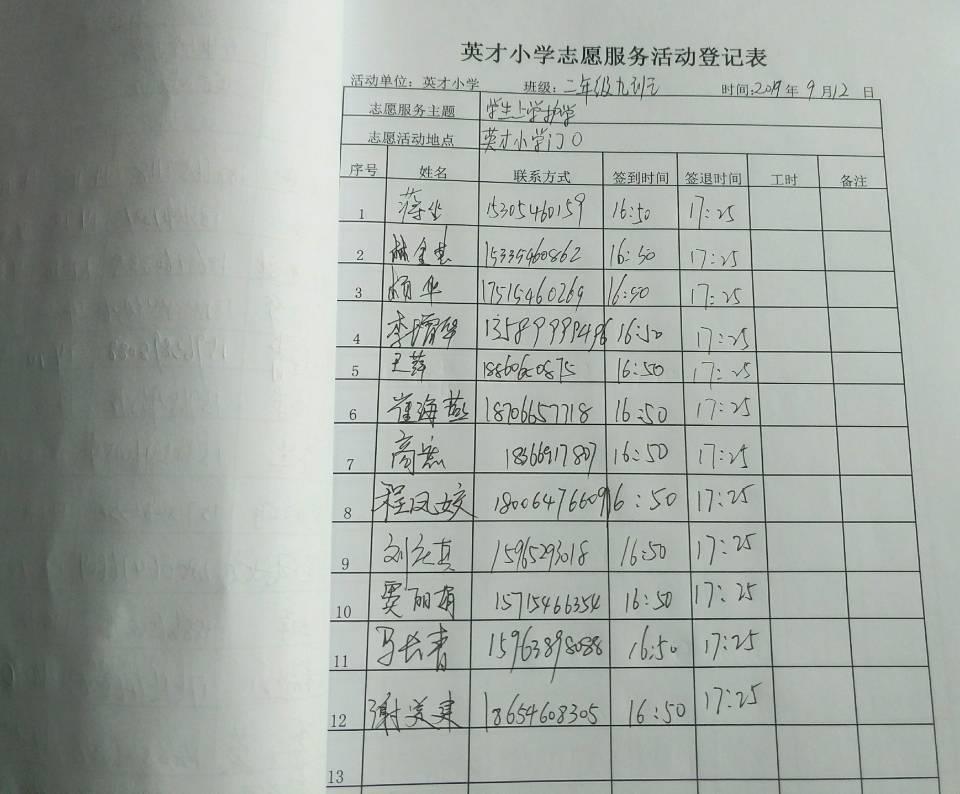 英才小学志愿服务活动登记表
活动单位：英才小学 班级：二年级九班 时间:2019年 9月12日
志愿服务主题 学生上学护学
志愿活动地点 英才小学门口
序号 姓名 联系方式 签到时间 签退时间 工时 备注
1 15305460159 16:50 17:25
2 15335460862 16:50 17:25
3 华 17515460269 16:50 17:25
4 李 13589999496 16:50 17:25
5 王萍 16:50 17:25
6 崔海燕 18706657718 16:50 17:25
7 高 18366917807 16:50 17:25
8 程凤姣 18006476609 16:50 17:25
9 刘 真 15965293018 16:50 17:25
10 窦丽娟 15715466354 16:50 17:25
11 马长青 15963898088 16:50 17:25
12 谢美建 18654608305 16:50 17:25
13